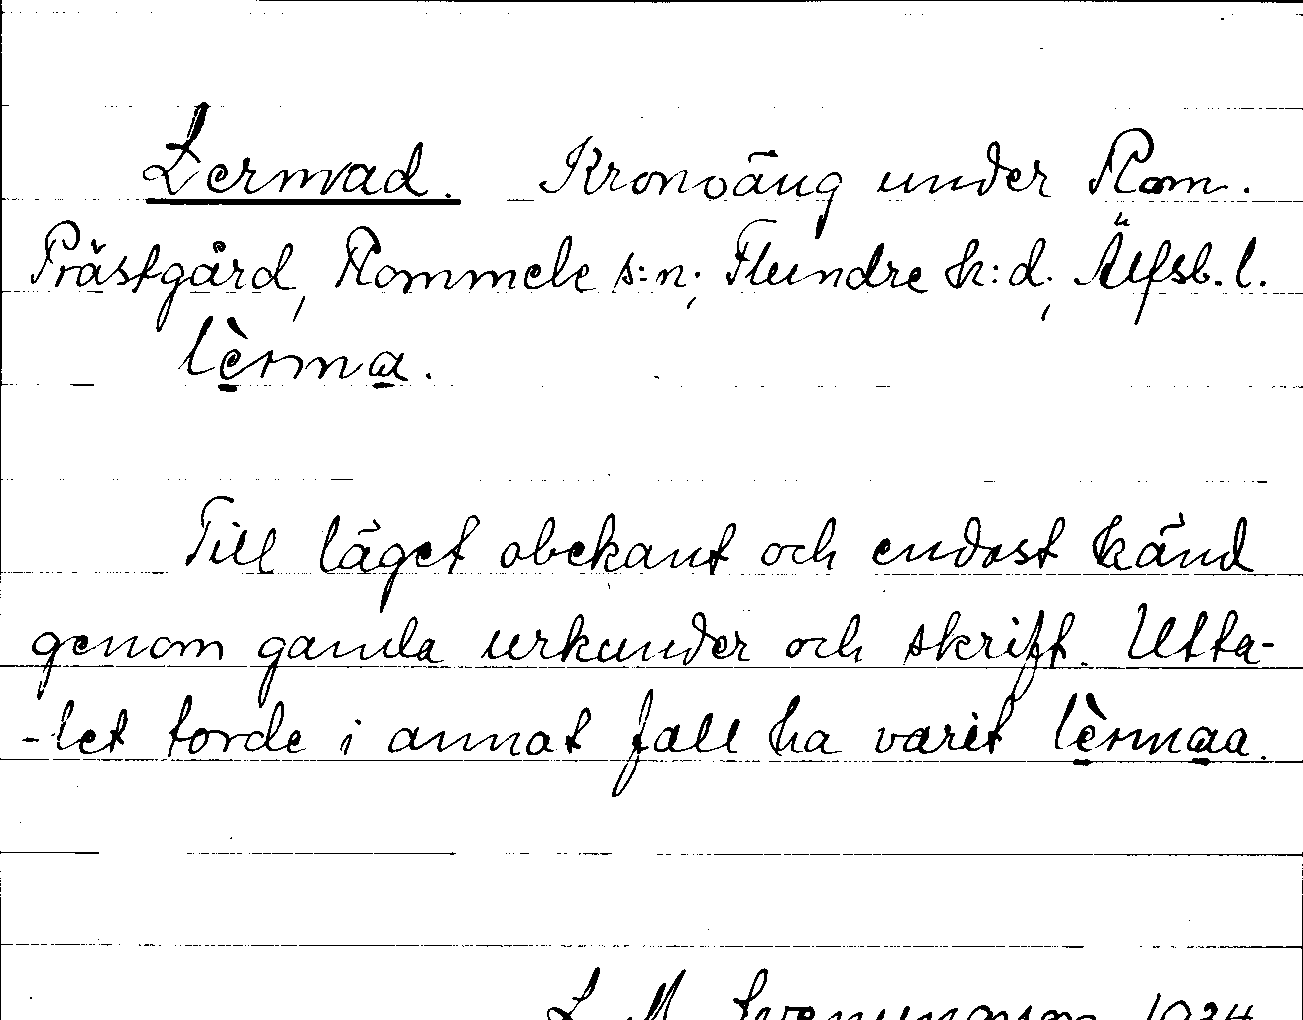 Lermad. Kronoäng under Rom.
Prästgård, Rommele s:n; Flundre h:d; Älfsb. l.
lèrma.
Till läget obekant och endast känd
genom gamla urkunder och skrift. Utta-
-let torde i annat fall ha varit lèrmaa.
L. M. 1934